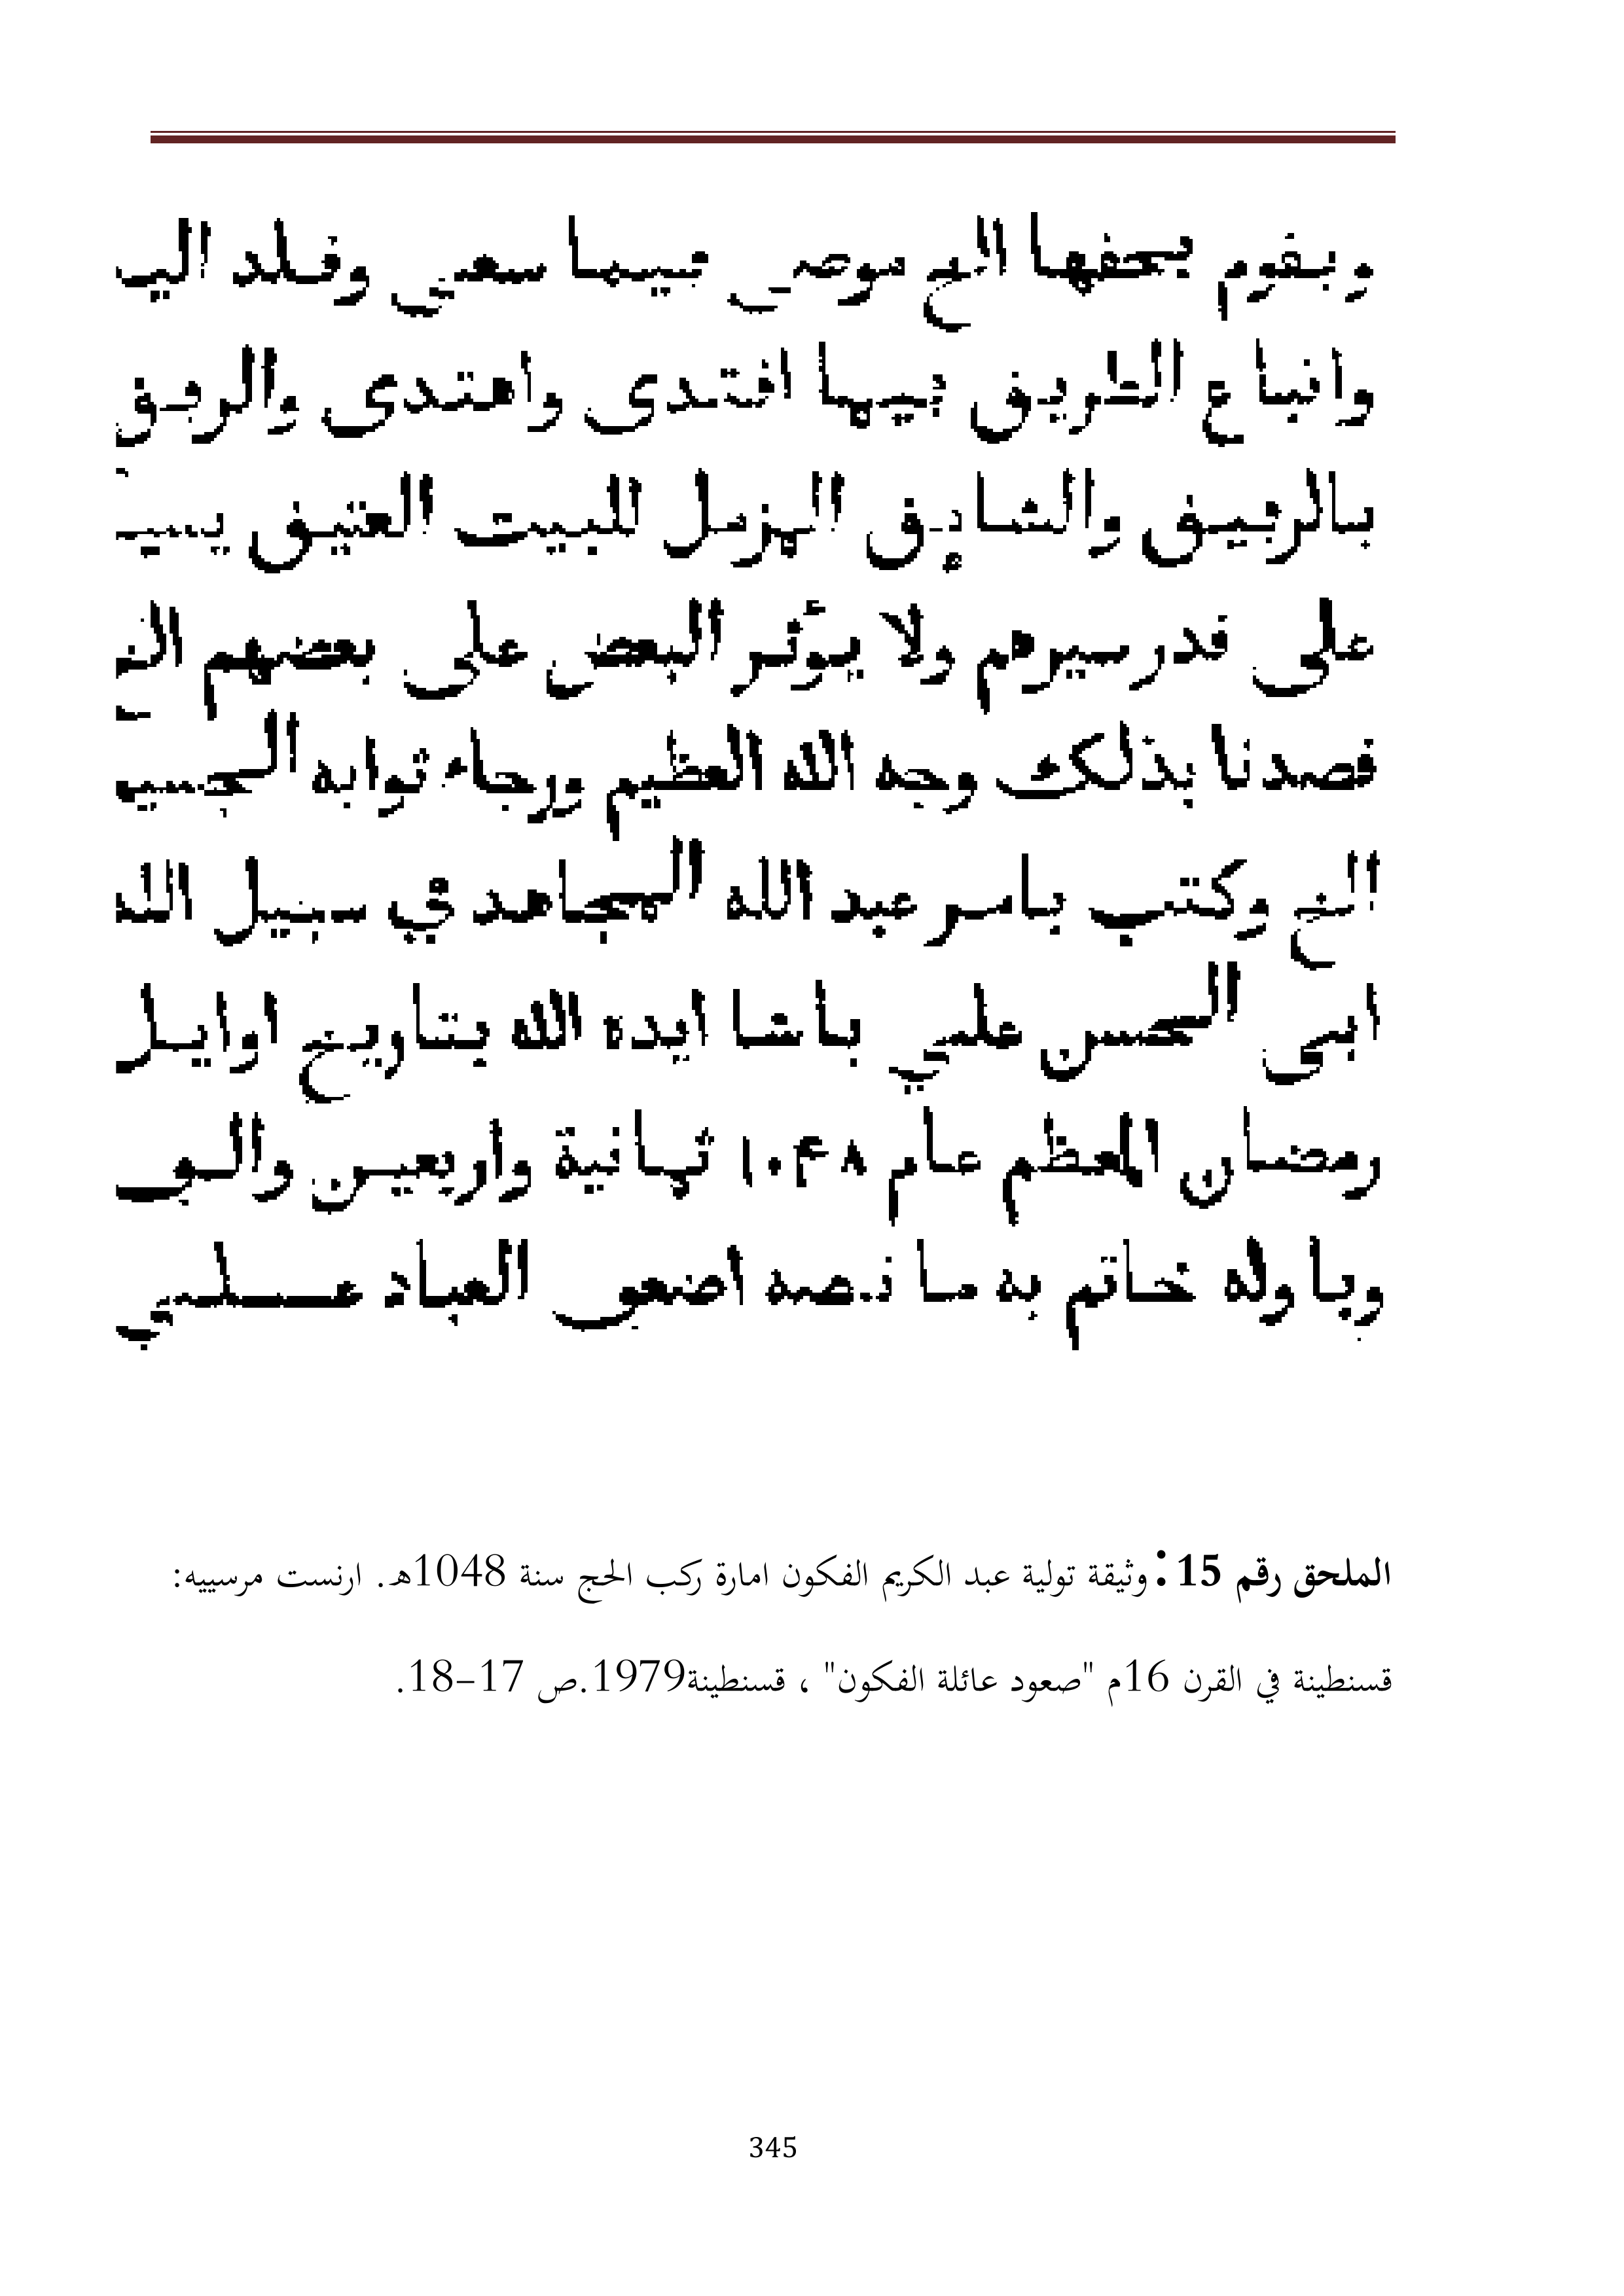 ويقوم بحقها الخ موصى فيما سعى وقلد اليـ
واتباع الطريق فيما اقتدى واهتدى والرفق
بالرفيق والشايق المزمل للبيت العتيق يسيـ
على قدر سيرهم ولا يؤثر البعض على بعضهم الخ
قصدنا بذلك وجه الله العظيم ورجاء ثوابه الجسيم
الخ وكتب باسر عبد الله المجاهد في سبيل الله
ابى الحسن علي باشا ايده الله بتاريخ اوايل
رمضان المعظم عام ١٠۴٨ ثمانية واربعين والف
وباوله خاتم به ما نصه اضعف العباد علي
الملحق رقم 15: وثيقة تولية عبد الكريم الفكون امارة ركب الحج سنة 1048هـ. ارنست مرسييه:
قسنطينة في القرن 16م "صعود عائلة الفكون" ، قسنطينة1979.ص 17-18.
345